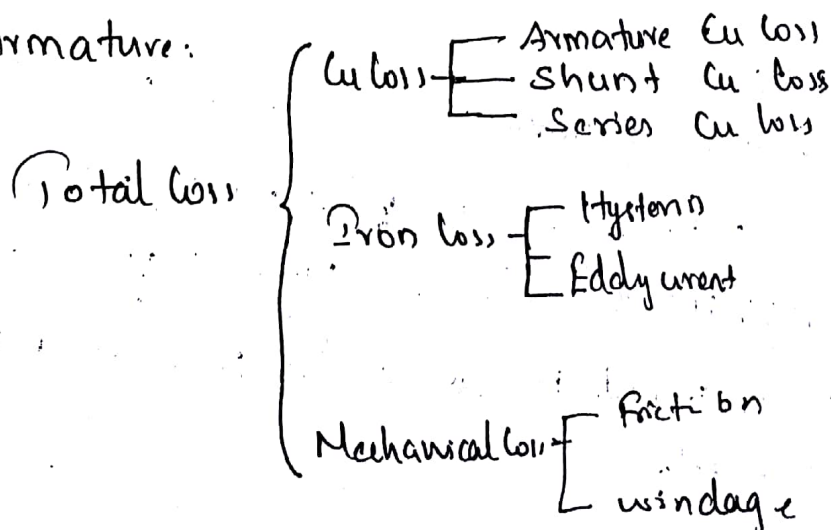 rmature:
Cu loss
Armature Cu loss
Shunt Cu loss
Series Cu loss
Total loss
Iron loss
Hysteresis
Eddy current
Mechanical loss
friction
windage